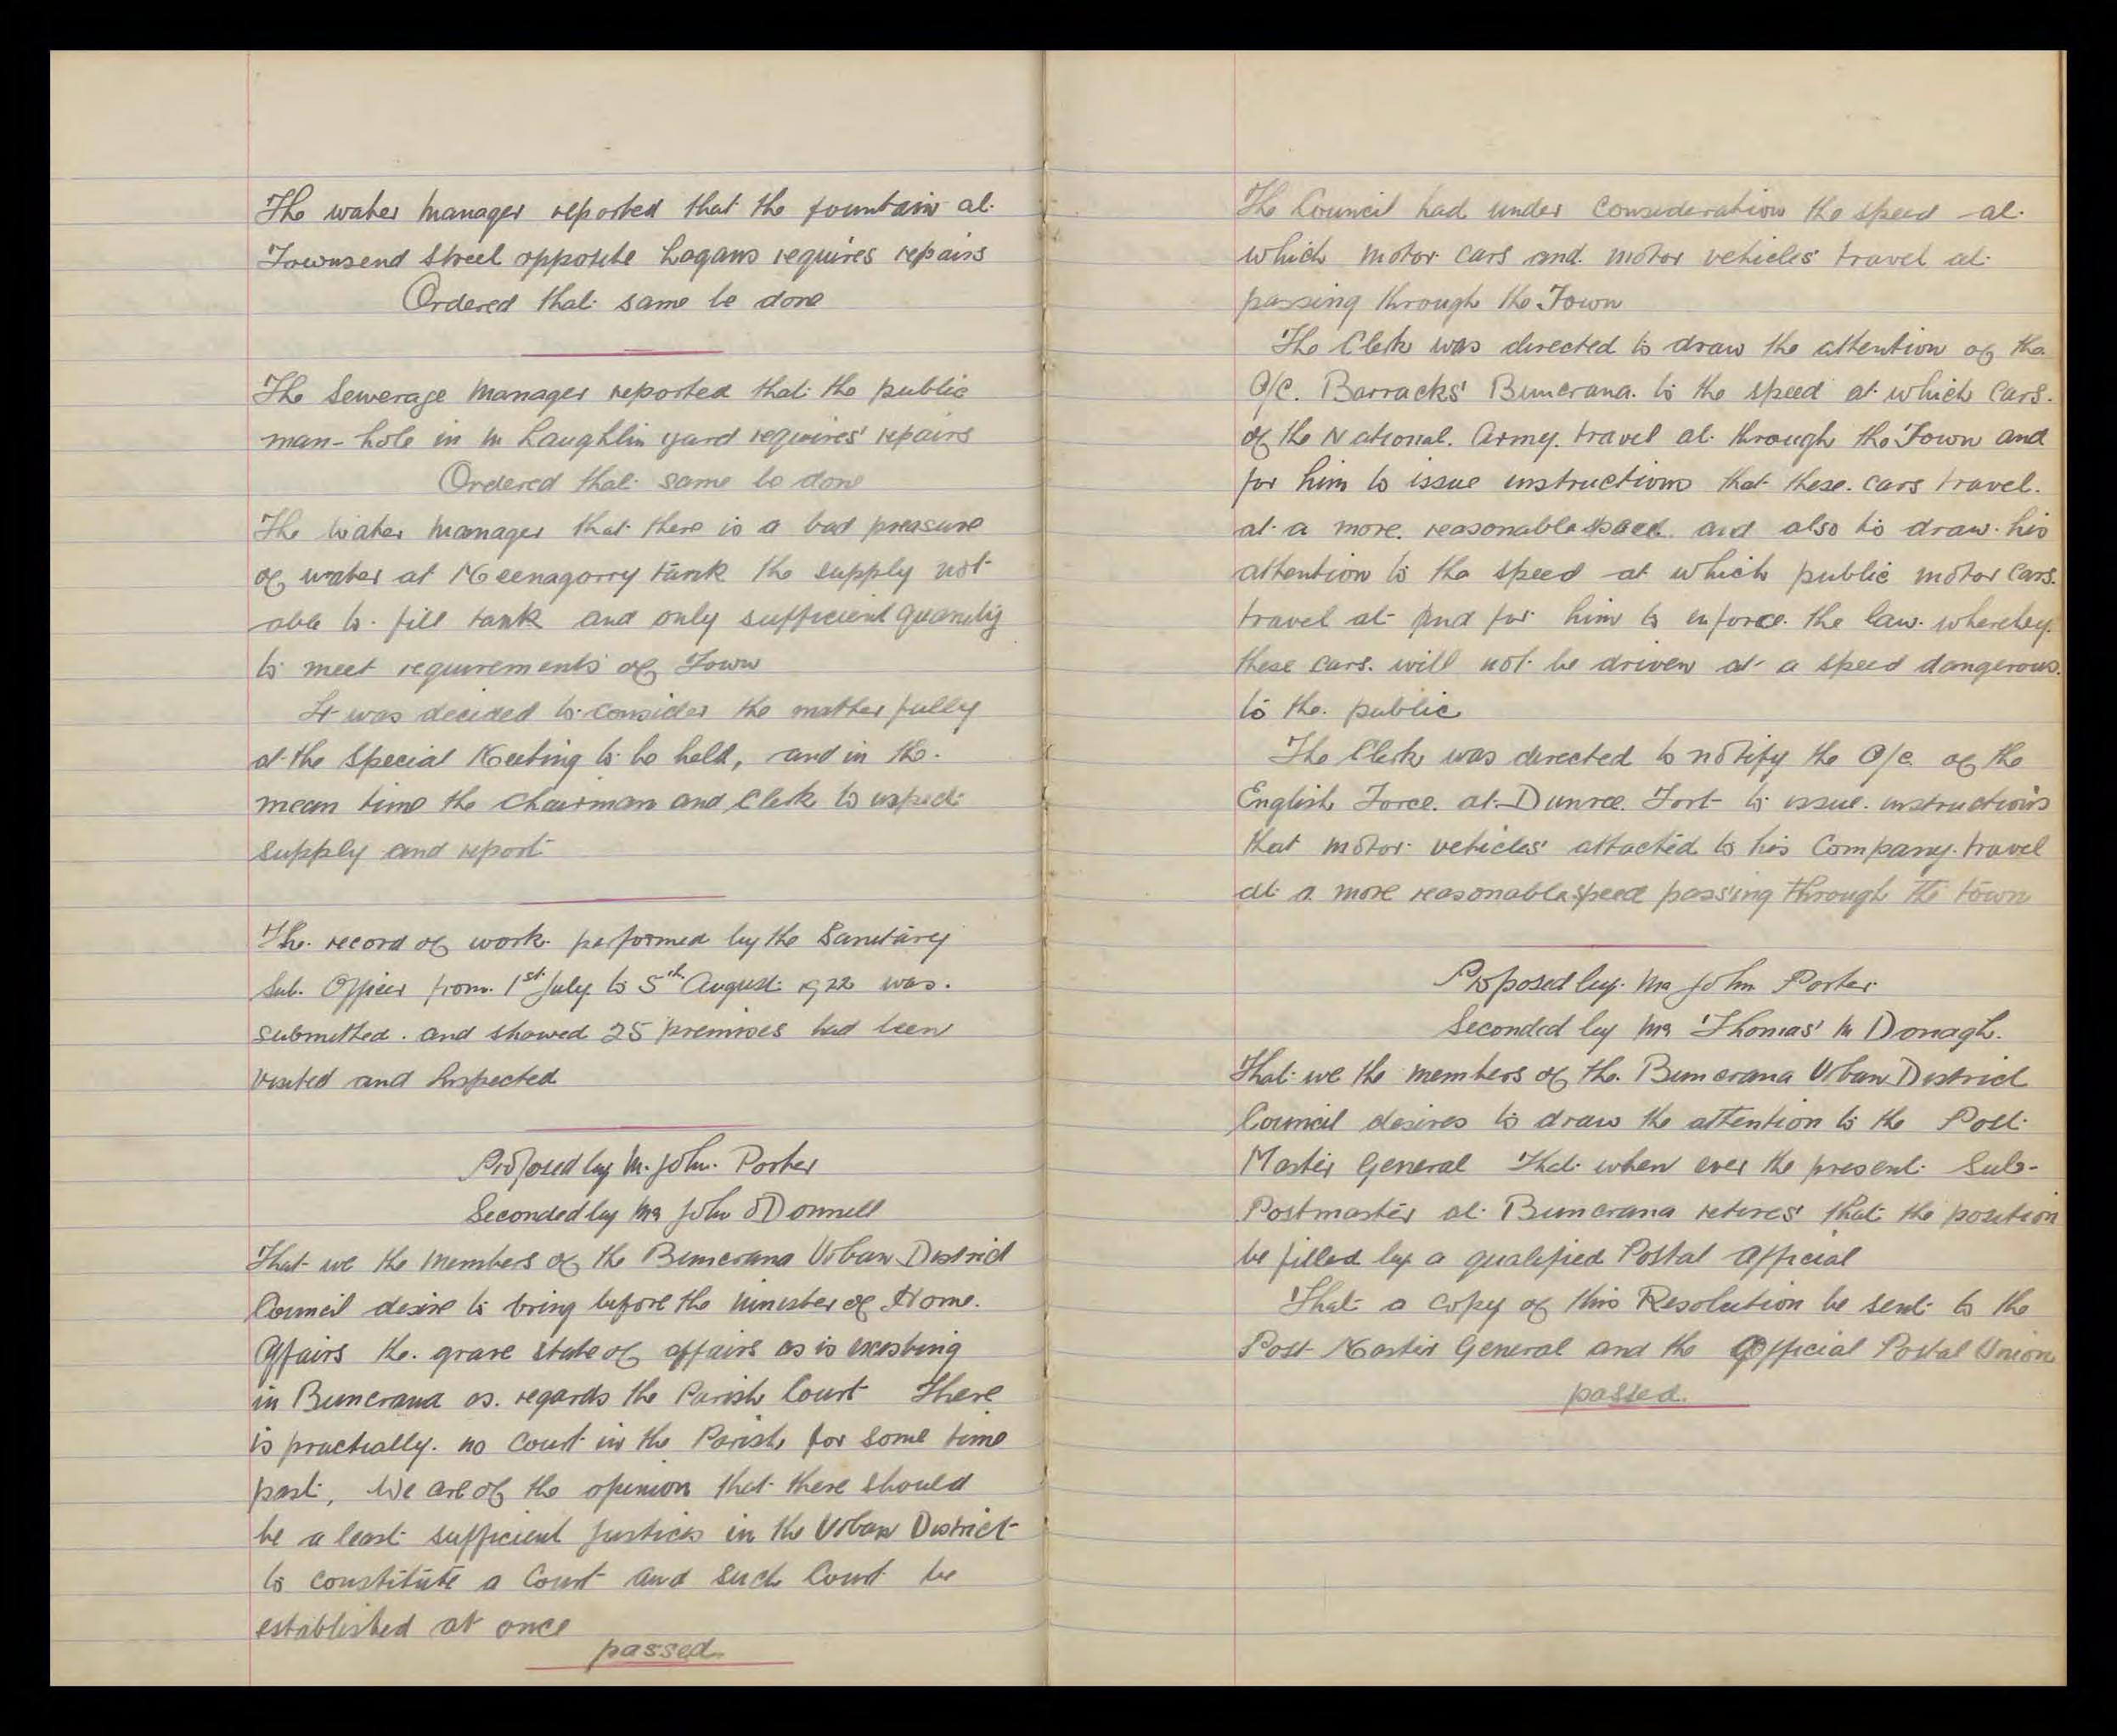 The water manager reported that the fountain at
Townsend Street opposite Logans requires repairs
Ordered that same be done
The Sewerage Manager reported that the public
man-hole in Mc Laughlin yard requires repairs
Ordered that same be done
The Water Manager that there is a bad preasure
of water at Meenagorry tank the supply not
able to fill tank and only sufficient quantity
to meet requirements of Town
It was decided to consider the matter fully
at the Special Meeting to be held, and in the
mean time the Chairman and Clerk to inspect
supply and report
The record of work performed by the Sanitary
Sub. Officer from 1st July to 5th August 1922 was
submitted. and showed 25 premises had been
visited and Inspected
Proposed by Mr. John Porter
Seconded by Mr John O'Donnell
That we the Members of the Buncrana Urban District
Council desire to bring before the Minister of Home
Affairs the grave state of affairs as is existing
in Buncrana as regards the Parish Court There
is practially no Court in the Parish for some time
past, We are of the opinion that there should
be a least sufficient Justices in the Urban District
to constitute a Court and such Court be
established at once
passed
The Council had under consideration the speed at
which motor cars and motor vehicles travel at
passing through the Town
The Clerk was directed to draw the attention of the
O/C. Barracks Buncrana to the speed at which Cars
of the National Army travel at through the Town and
for him to issue instructions that these cars travel
at a more reasonable speed and also to draw his
attention to the speed at which public motor Cars
travel at and for him to enforce the law whereby
these cars will not be driven at a speed dangerous
to the public
The Clerk was directed to notify the O/C of the
English Force at Dunree Fort to issue instructions
that motor vehicles attached to his Company travel
at a more reasonable speed passing through the town
Proposed by Mr John Porter
Seconded by Mr Thomas Mc Donagh
That we the members of the Buncrana Urban District
Council desires to draw the attention to the Post
Master General That when ever the present Sub-
Postmaster at Buncrana retires that the position
be filled by a qualified Postal Official
That a copy of this Resolution be sent to the
Post Master General and the Official Postal Union
passed